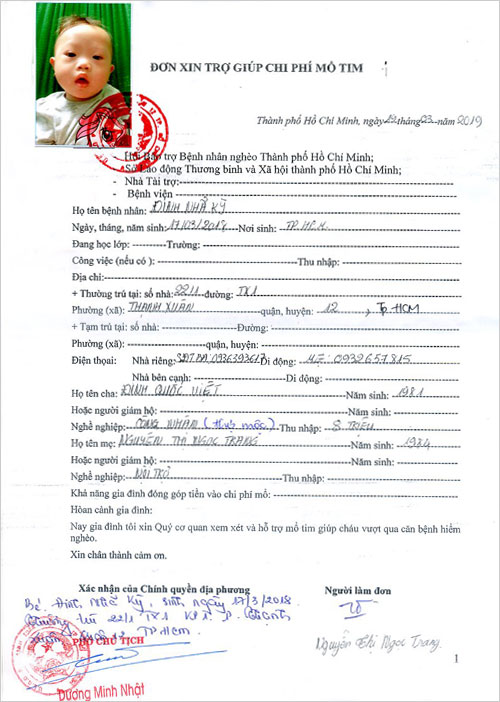 ĐƠN XIN TRỢ GIÚP CHI PHÍ MỔ TIM
Thành phố Hồ Chí Minh, ngày 19 tháng 03 năm 2019
- Hội Bảo trợ Bệnh nhân nghèo Thành phố Hồ Chí Minh;
- Sở Lao động Thương binh và Xã hội thành phố Hồ Chí Minh;
- Nhà Tài trợ:
- Bệnh viện
Họ tên bệnh nhân: ĐINH NHÃ KỲ
Ngày, tháng, năm sinh: 17/03/2018 Nơi sinh: TP.HCM
Đang học lớp: Trường:
Công việc (nếu có): Thu nhập:
Địa chỉ:
+ Thường trú tại: số nhà: 22/1 đường: TX1
Phường (xã): THẠNH XUÂN quận, huyện: 12, Tp.HCM
+ Tạm trú tại: số nhà: Đường:
Phường (xã): quận, huyện:
Điện thoại: Nhà riêng: SĐT BA: 0936393617 Di động: MẸ: 0932657815
Nhà bên cạnh: Di động:
Họ tên cha: ĐINH QUỐC VIỆT Năm sinh: 1981
Hoặc người giám hộ: Năm sinh:
Nghề nghiệp: CÔNG NHÂN (thợ mộc) Thu nhập: 5 TRIỆU
Họ tên mẹ: NGUYỄN THỊ NGỌC TRANG Năm sinh: 1984
Hoặc người giám hộ: Năm sinh:
Nghề nghiệp: NỘI TRỢ Thu nhập:
Khả năng gia đình đóng góp tiền vào chi phí mổ:
Hoàn cảnh gia đình:
Nay gia đình tôi xin Quý cơ quan xem xét và hỗ trợ mổ tim giúp cháu vượt qua căn bệnh hiểm
nghèo.
Xin chân thành cảm ơn.
Xác nhận của Chính quyền địa phương Người làm đơn
Bé: Đinh Nhã Kỳ, sinh ngày 17/3/2018
thường trú 22/1 TX1 KP1 P. Thạnh
Xuân Quận 12 TPHcm
PHÓ CHỦ TỊCH
Nguyễn Thị Ngọc Trang
Dương Minh Nhật
1